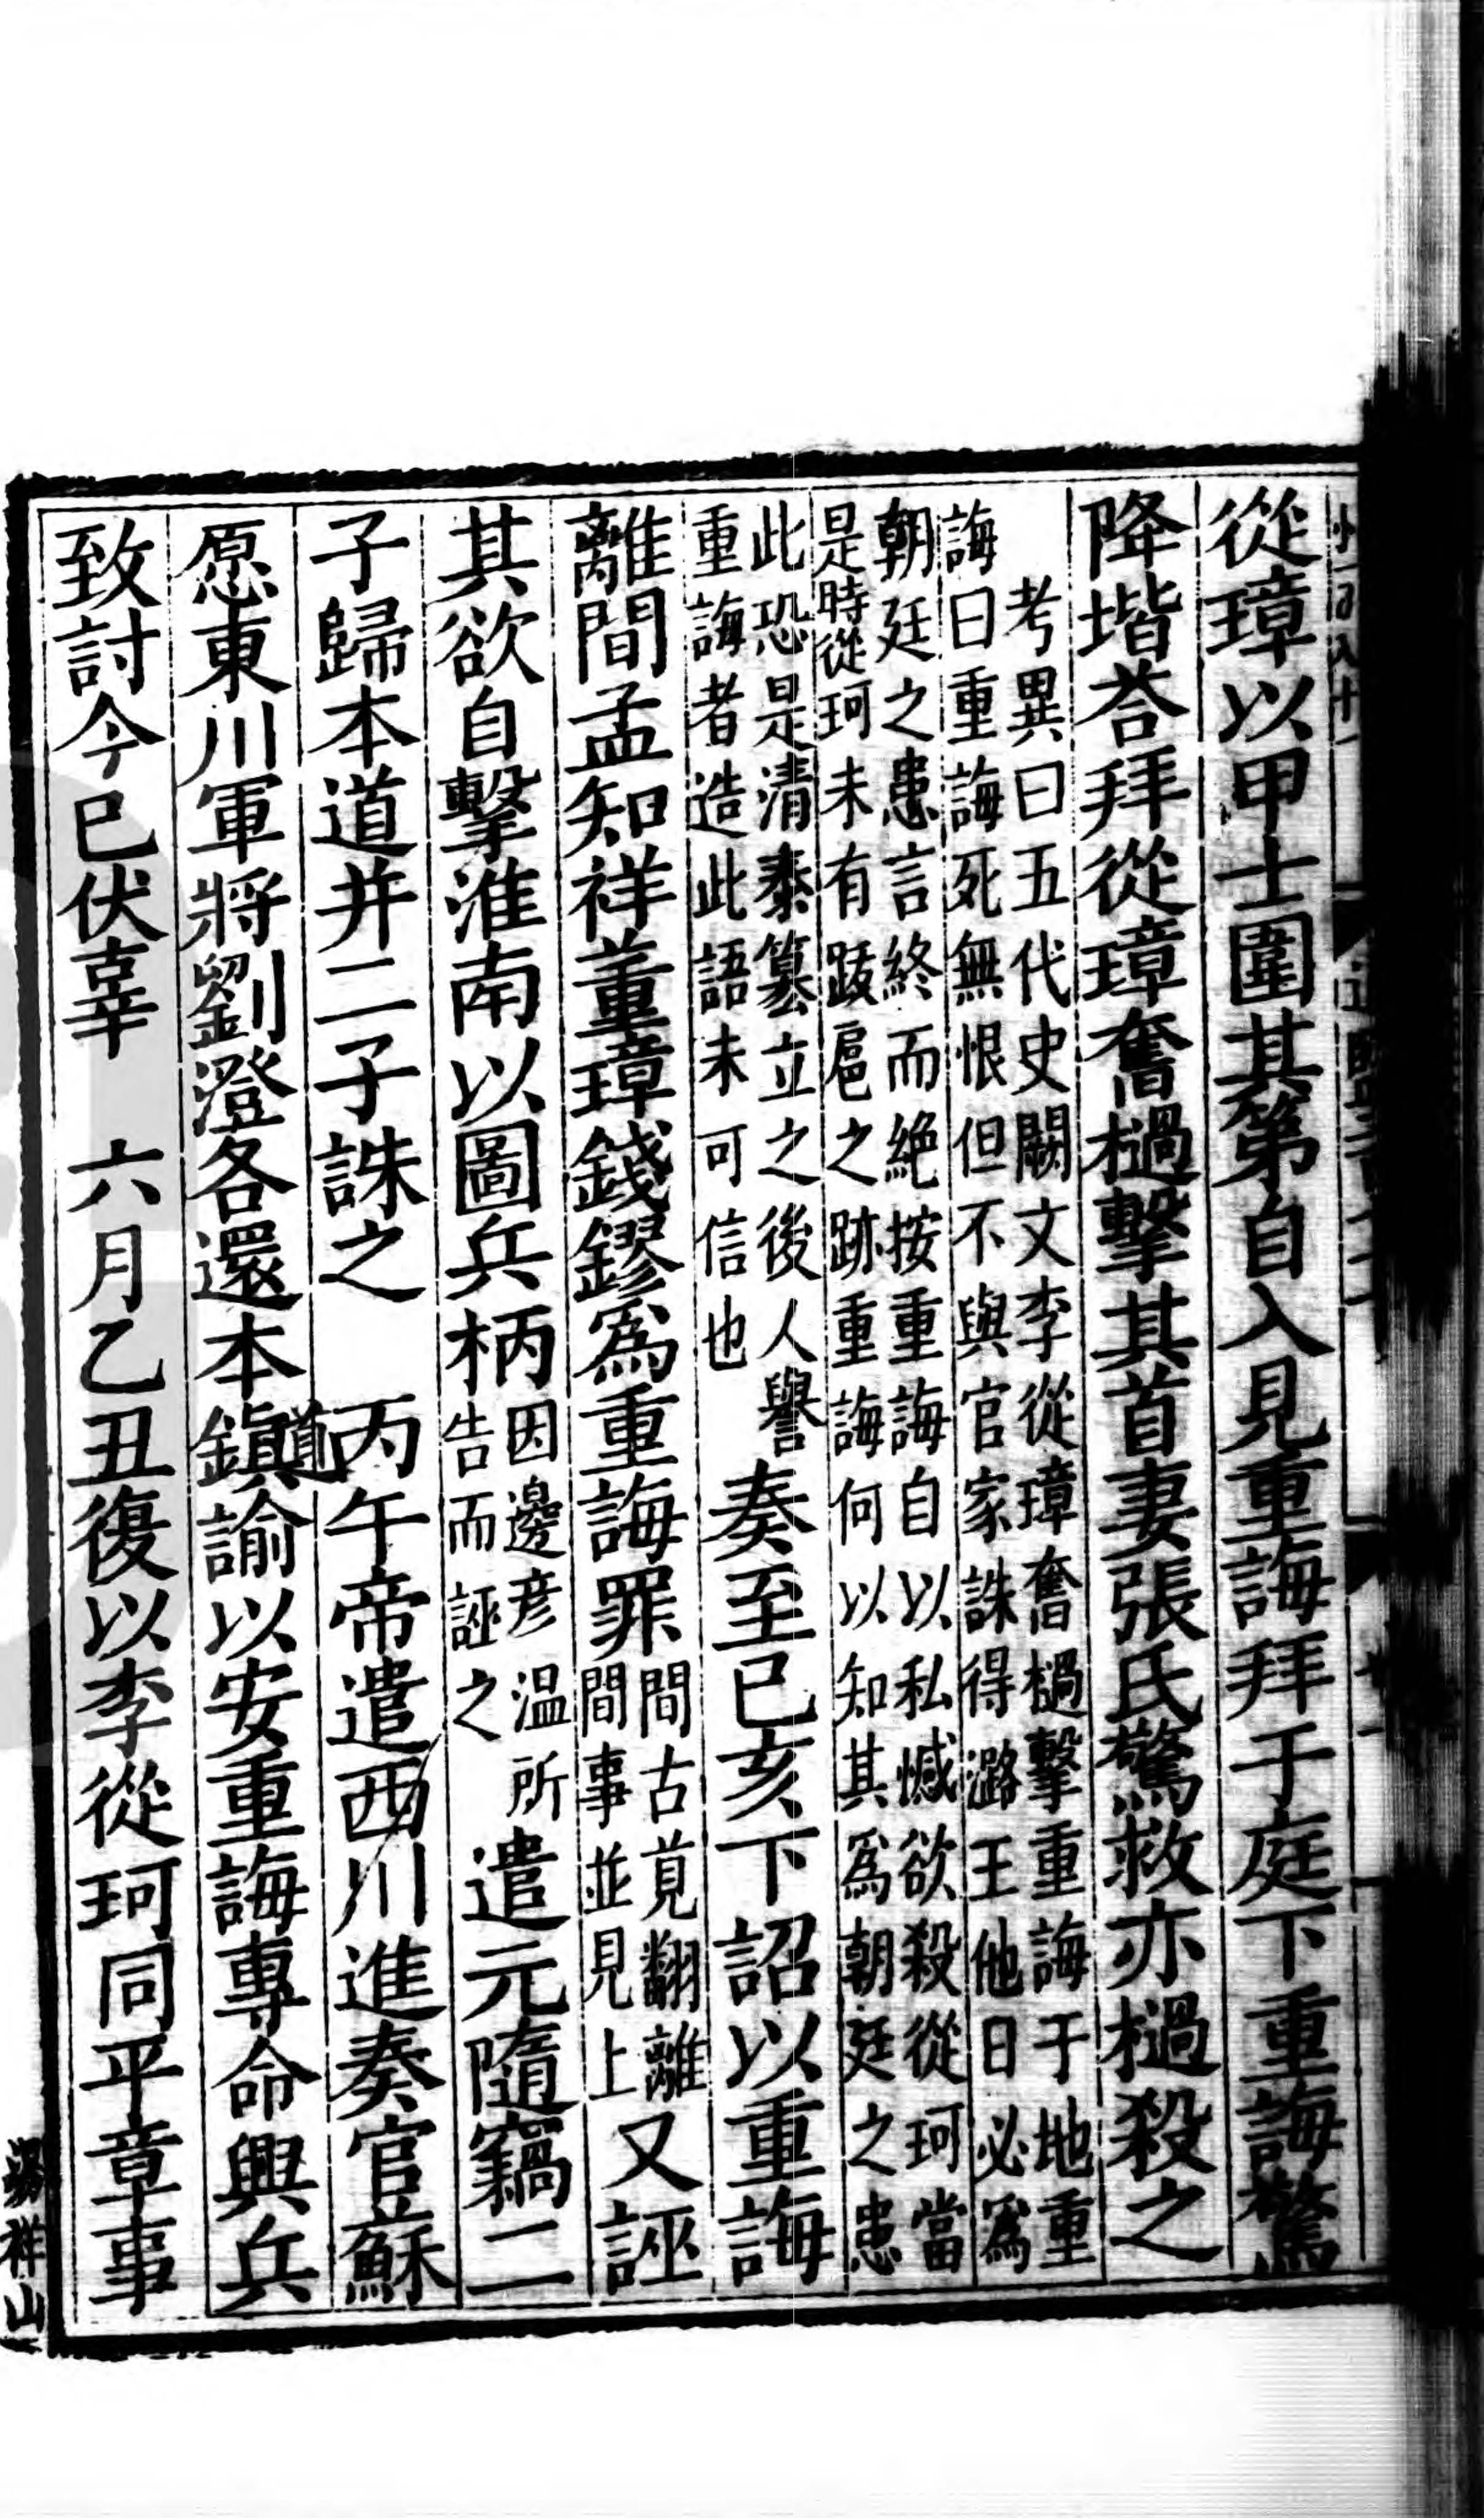 從璋以甲士圍其第自入見重誨拜于庭下重誨驚
降堦荅拜從璋奮檛擊其首妻張氏驚救亦檛殺之
考異曰五代史闕文李從璋奮檛擊重誨于地重
誨曰重誨死無恨但不與官家誅得潞王他日必爲
朝廷之患言終而絶按重誨自以私憾欲殺從珂當
是時從珂未有跋扈之跡重誨何以知其爲朝廷之患
此恐是清泰簒立之後人譽
重誨者造此語未可信也
奏至已亥下詔以重誨
離間孟知祥董璋錢鏐爲重誨罪
間古莧翻離
間事並見上
又誣
其欲自擊淮南以圖兵柄
因邊彦温所
告而誣之
遣元隨竊二
子歸本道并二子誅之　丙午帝遣西川進奏官蘇
愿東川軍將劉澄各還本鎮道諭以安重誨專命興兵
致討今已伏辜　六月乙丑復以李從珂同平章事